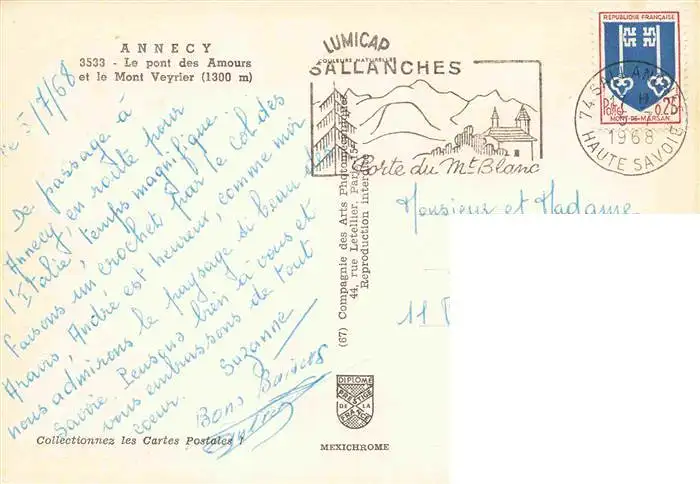 ANNECY
3533 - Le pont des Amours
et le Mont Veyrier (1300 m)
le 5/7/68
De passage à
Annecy, en route pour
l'Italie, temps magnifique.
Faisons un crochet par le Col des
Aravis, André est heureux, comme moi
nous admirons le paysage si beau de
Savoie. Pensons bien à vous et
vous embrassons de tout
coeur. Suzanne
Bons Baisers
André
Collectionnez les Cartes Postales !
LUMICAP
COULEURS NATURELLES
SALLANCHES
Porte du Mt Blanc
(67) Compagnie des Arts Photomécaniques
44, rue Letellier, Paris-15e
Reproduction interdite
DIPLOME
PRESTIGE
DE LA
FRANCE
MEXICHROME
RÉPUBLIQUE FRANÇAISE
Postes 0,25
MONT-DE-MARSAN
74 SALLANCHES
1968
HAUTE SAVOIE
Monsieur et Madame
11